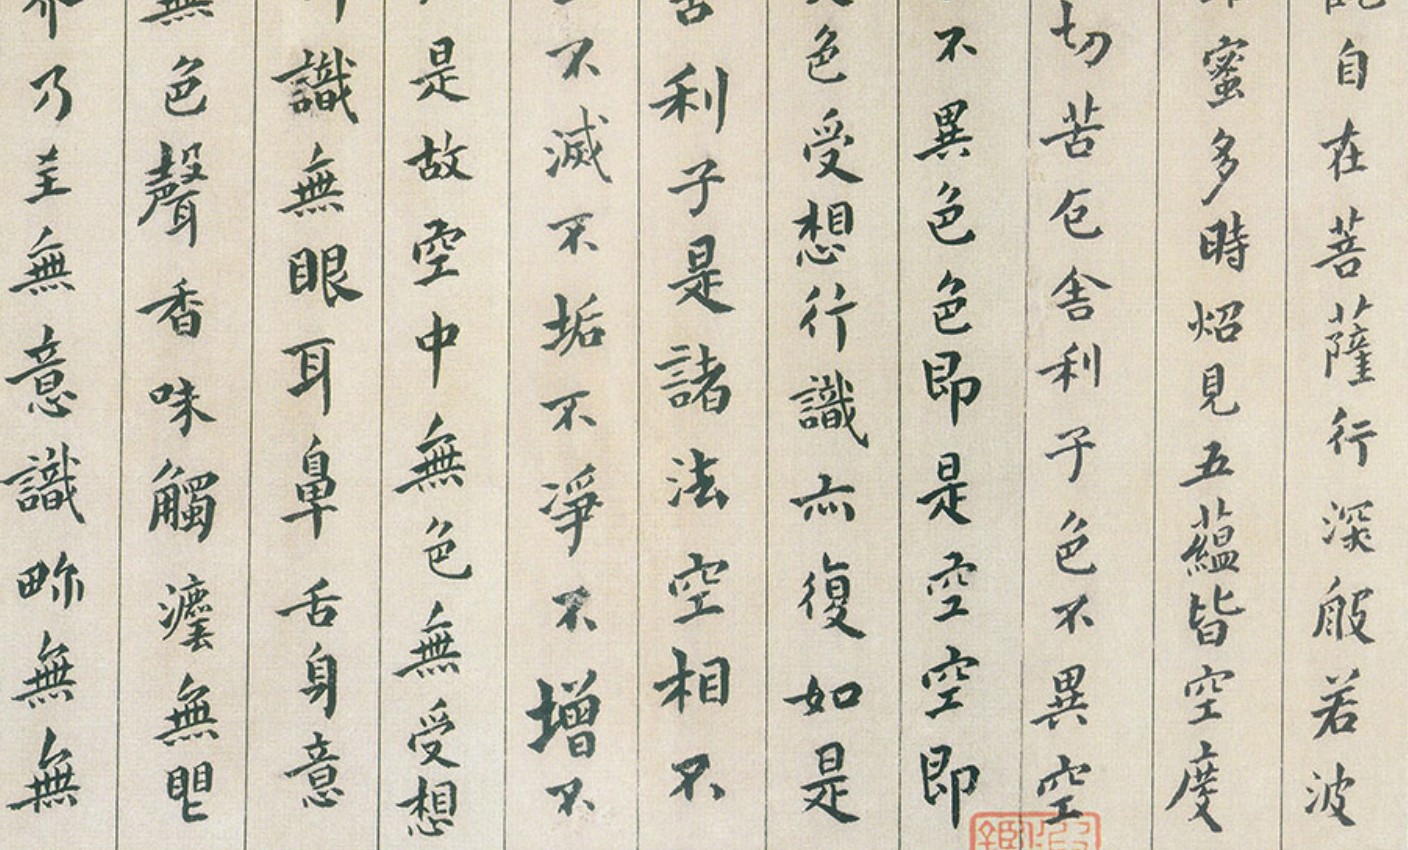 自在菩薩行深般若波
蜜多時炤見五蘊皆空度
切苦厄舍利子色不異空
不異色色即是空空即
色受想行識亦復如是
舍利子是諸法空相不
不滅不垢不淨不增不
是故空中無色無受想
識無眼耳鼻舌身意
無色聲香味觸法無眼
乃至無意識界無無